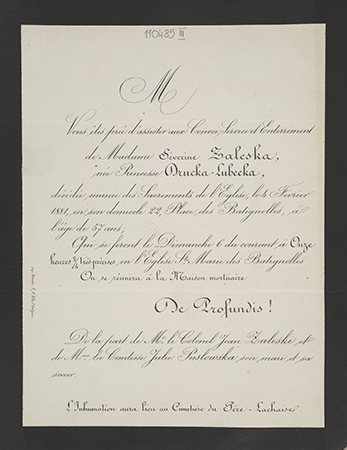 110485 III
M
Vous êtes prié d'assister aux Convoi, Service et Enterrement
de Madame Séverine Zaleska,
née Princesse Drucka-Lubecka,
décédée munie des Sacrements de l'Eglise, le 4 Février
1881, en son domicile 22, Place des Batignolles, à
l'âge de 57 ans;
Qui se feront le Dimanche 6 du courant à Onze
heures 3/4 très précises en l'Eglise Ste Marie des Batignolles
On se réunira à la Maison mortuaire
De Profundis!
De la part de Mr. le Colonel Jean Zaleski et
de Mme la Comtesse Julie Puslowska son mari et sa
sœur.
L'Inhumation aura lieu au Cimetière du Père-Lachaise.